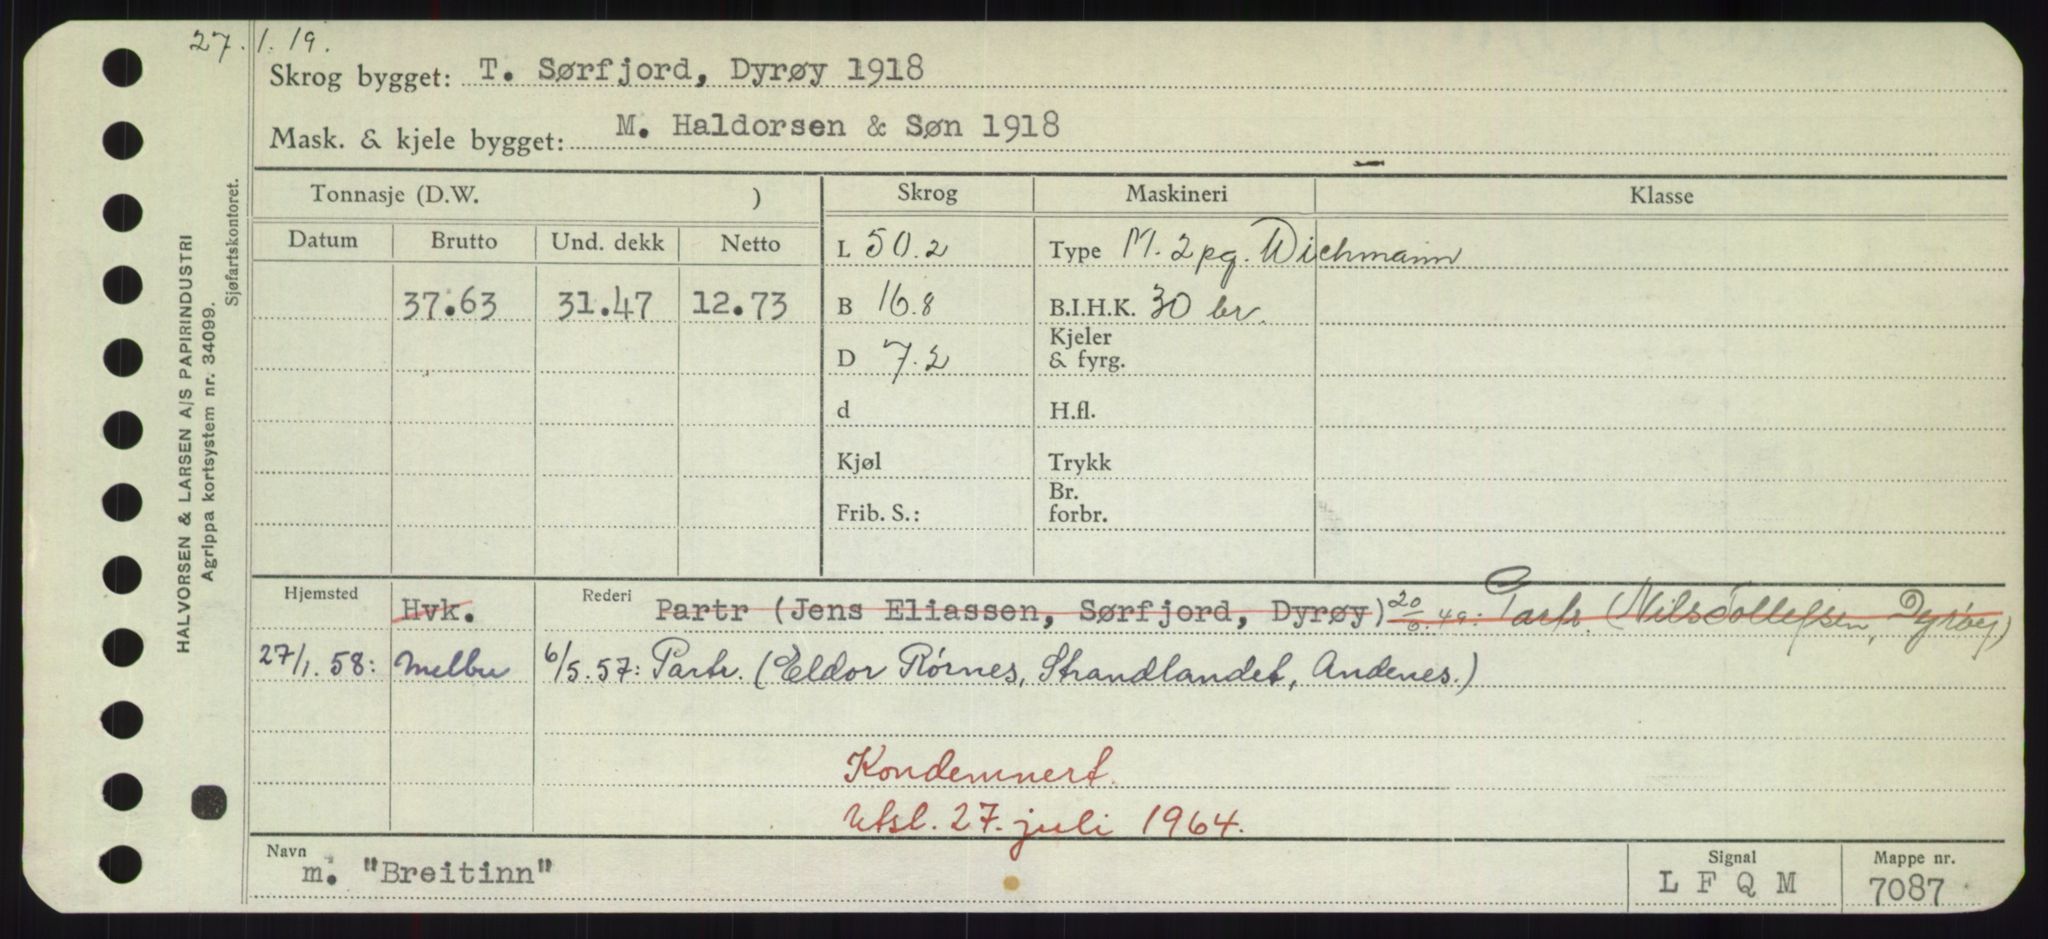 27.1.19.
Skrog bygget: T. Sørfjord, Dyrøy 1918
Mask. & kjele bygget: M. Haldorsen & Søn 1918
Tonnasje (D.W. ) Skrog Maskineri Klasse
Datum Brutto Und. dekk Netto L 50.2 Type M. 2 pg. Wichmann
37.63 31.47 12.73 B 16.8 B.I.H.K. 30 br.
D 7.2 Kjeler & fyrg.
d H.fl.
Kjøl Trykk
Frib. S.: Br. forbr.
Hjemsted Hvk. Rederi Partr (Jens Eliassen, Sørfjord, Dyrøy) 20/6.49: Partr. (Nils Tollefsen, Dyrøy)
27/1.58: Melbu 6/5.57: Partr. (Eldor Rørnes, Strandlandet, Andenes.)
Kondemnert.
Utsl. 27. juli 1964.
Navn m. "Breitinn" Signal L F Q M Mappe nr. 7087
HALVORSEN & LARSEN A/S PAPIRINDUSTRI
Agrippa kortsystem nr. 34099.
Sjøfartskontoret.